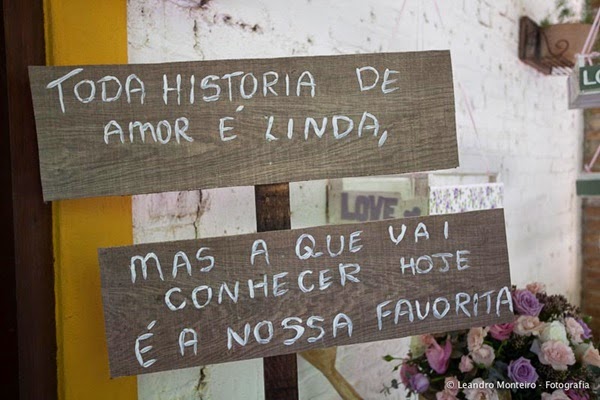 TODA HISTORIA DE
AMOR É LINDA,
LOVE
MAS A QUE VAI
CONHECER HOJE
É A NOSSA FAVORITA
© Leandro Monteiro - Fotografia